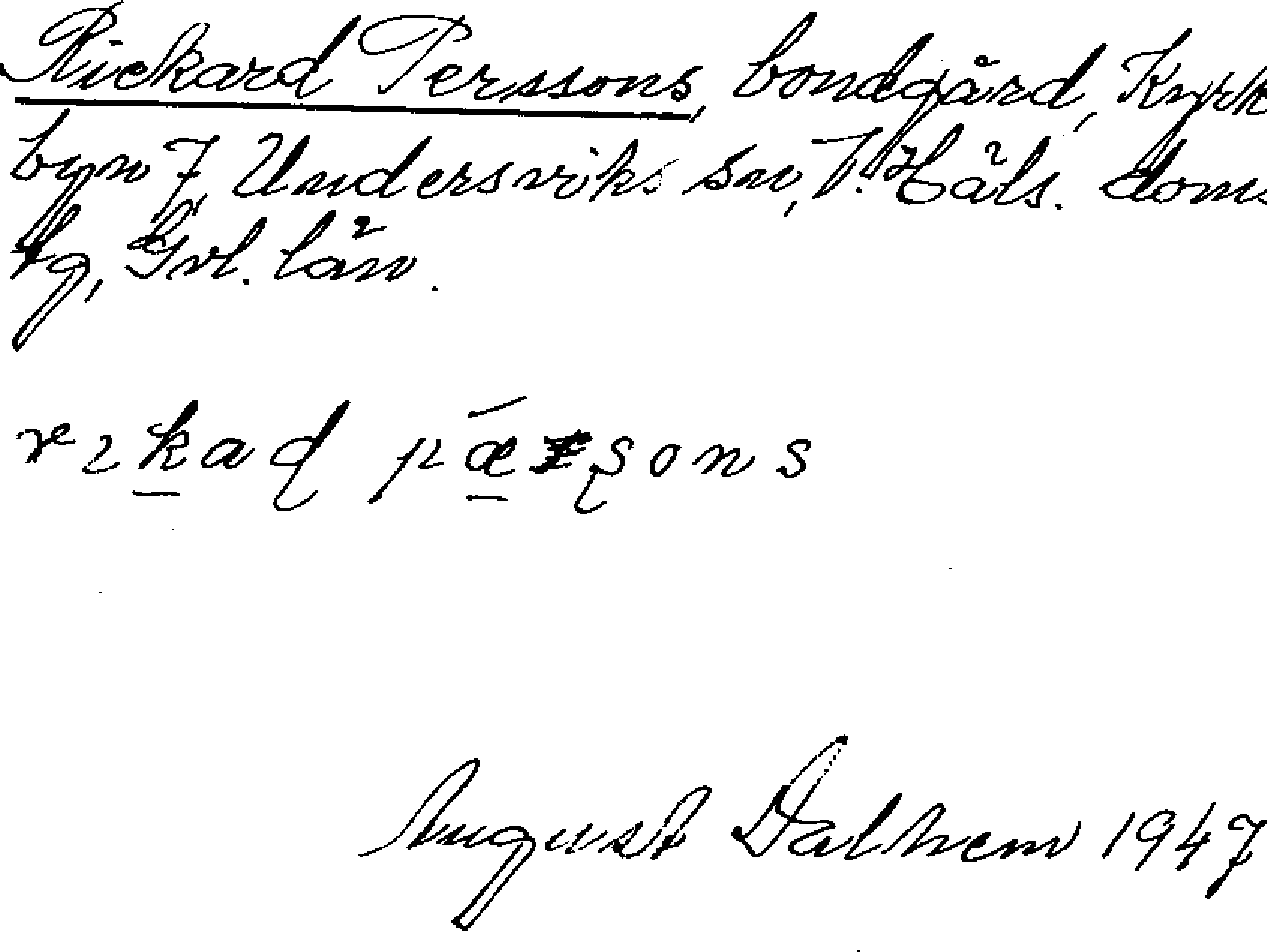 Rickard Perssons, bondgård, Kyrk
byn 7, Undersviks sn, V. Häls. doms
tg, Gvl. län.
rɩkaɖ pǽʂons
August Dalhem 1947